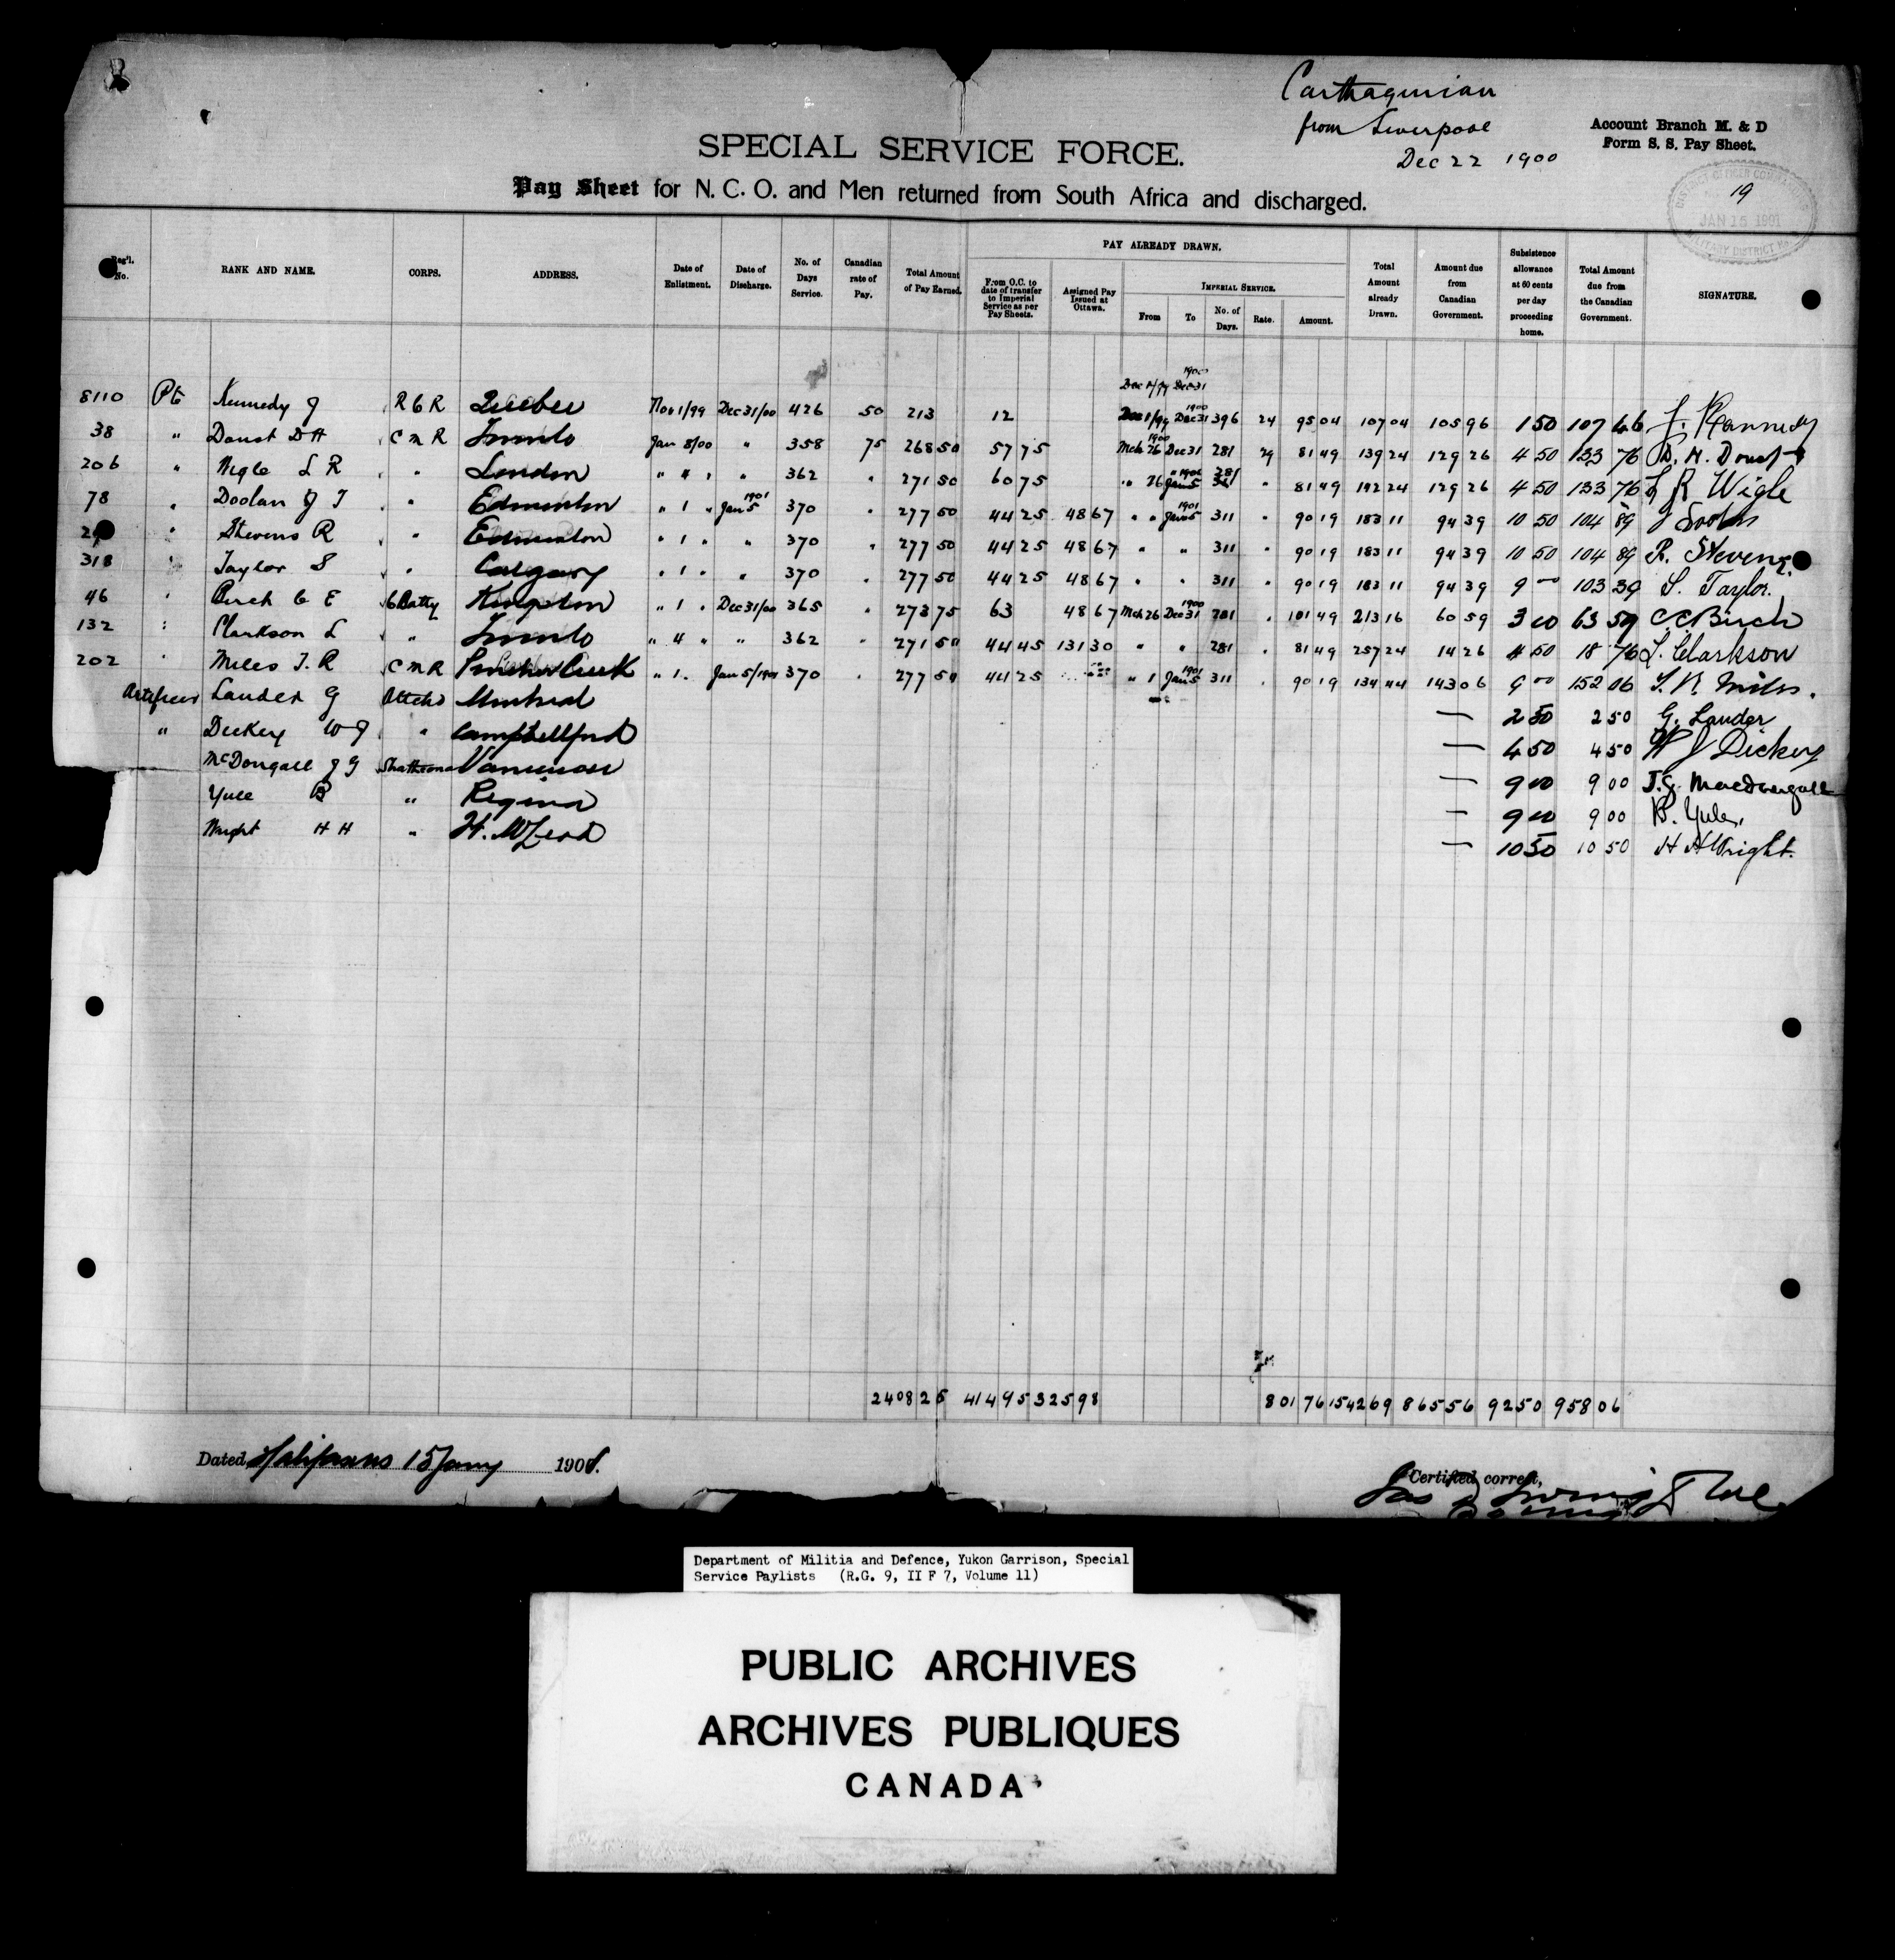 Carthaginian
from Liverpool
Dec 22 1900
Account Branch M. & D
Form S. S. Pay Sheet.
19
JAN 15 1901
SPECIAL SERVICE FORCE.
Pay Sheet for N. C. O. and Men returned from South Africa and discharged.
Reg'l. No. RANK AND NAME. CORPS. ADDRESS. Date of Enlistment. Date of Discharge. No. of Days Service. Canadian rate of Pay. Total Amount of Pay Earned. PAY ALREADY DRAWN. From O.C. to date of transfer to Imperial Service as per Pay Sheets. Assigned Pay Issued at Ottawa. IMPERIAL SERVICE. From To No. of Days. Rate. Amount. Total Amount already Drawn. Amount due from Canadian Government. Subsistence allowance at 60 cents per day proceeding home. Total Amount due from the Canadian Government. SIGNATURE.
Dec 1/99 Dec 31 1900
8110 Pte Kennedy J R C R Quebec Nov 1/99 Dec 31/00 426 50 213 12 Dec 1/99 Dec 31 1900 396 24 95 04 107 04 105 96 1 50 107 46 J. Kennedy
38 " Doust D H C M R Toronto Jan 8/00 " 358 75 268 50 57 75 Mch 26 1900 Dec 31 281 29 81 49 139 24 129 26 4 50 133 76 D. H. Doust
206 " Wigle L R " London " 4 " " 362 " 271 50 60 75 " 26 281 " 81 49 142 24 129 26 4 50 133 76 L R Wigle
78 " Doolan J T " Edmonton " 1 " Jan 5 1901 370 " 277 50 44 25 48 67 " " Jan 5 1901 311 " 90 19 183 11 94 39 10 50 104 89
" Stevens R " Edmonton " 1 " " 370 " 277 50 44 25 48 67 " " 311 " 90 19 183 11 94 39 10 50 104 89 R. Stevens.
318 Taylor S " Calgary " 1 " " 370 " 277 50 44 25 48 67 " " 311 " 90 19 183 11 94 39 9 00 103 39 S. Taylor.
46 " Birch C E C Batty Kingston " 1 " Dec 31/00 365 " 273 75 63 48 67 Mch 26 Dec 31 1900 281 " 101 49 213 16 60 59 3 00 63 59 C E Birch
132 " Clarkson L " Toronto " 4 " " 362 " 271 50 44 45 131 30 " " 281 " 81 49 257 24 14 26 4 50 18 76 L. Clarkson
202 " Miles T. R C M R Pincher Creek " 1 " Jan 5/1901 370 " 277 50 44 25 " 1 Jan 5 1901 311 " 90 19 134 44 143 06 9 00 152 06 T. R. Miles.
Artificer Lauder G Attchd Montreal — 2 50 2 50 G. Lauder
" Dickey W J " Campbellford — 4 50 4 50 W J Dickey
McDongall J G Strathcona Vancouver — 9 00 9 00 J. G. MacDougall
Yule B " Regina — 9 00 9 00 B. Yule.
Wright H H " Ft. McLeod — 10 50 10 50 H H Wright.
2408 25 414 95 325 98 801 76 1542 69 865 56 92 50 958 06
Dated Halifax NS 15 Jany 1901.
Certified correct,
Department of Militia and Defence, Yukon Garrison, Special
Service Paylists (R.G. 9, II F 7, Volume 11)
PUBLIC ARCHIVES
ARCHIVES PUBLIQUES
CANADA